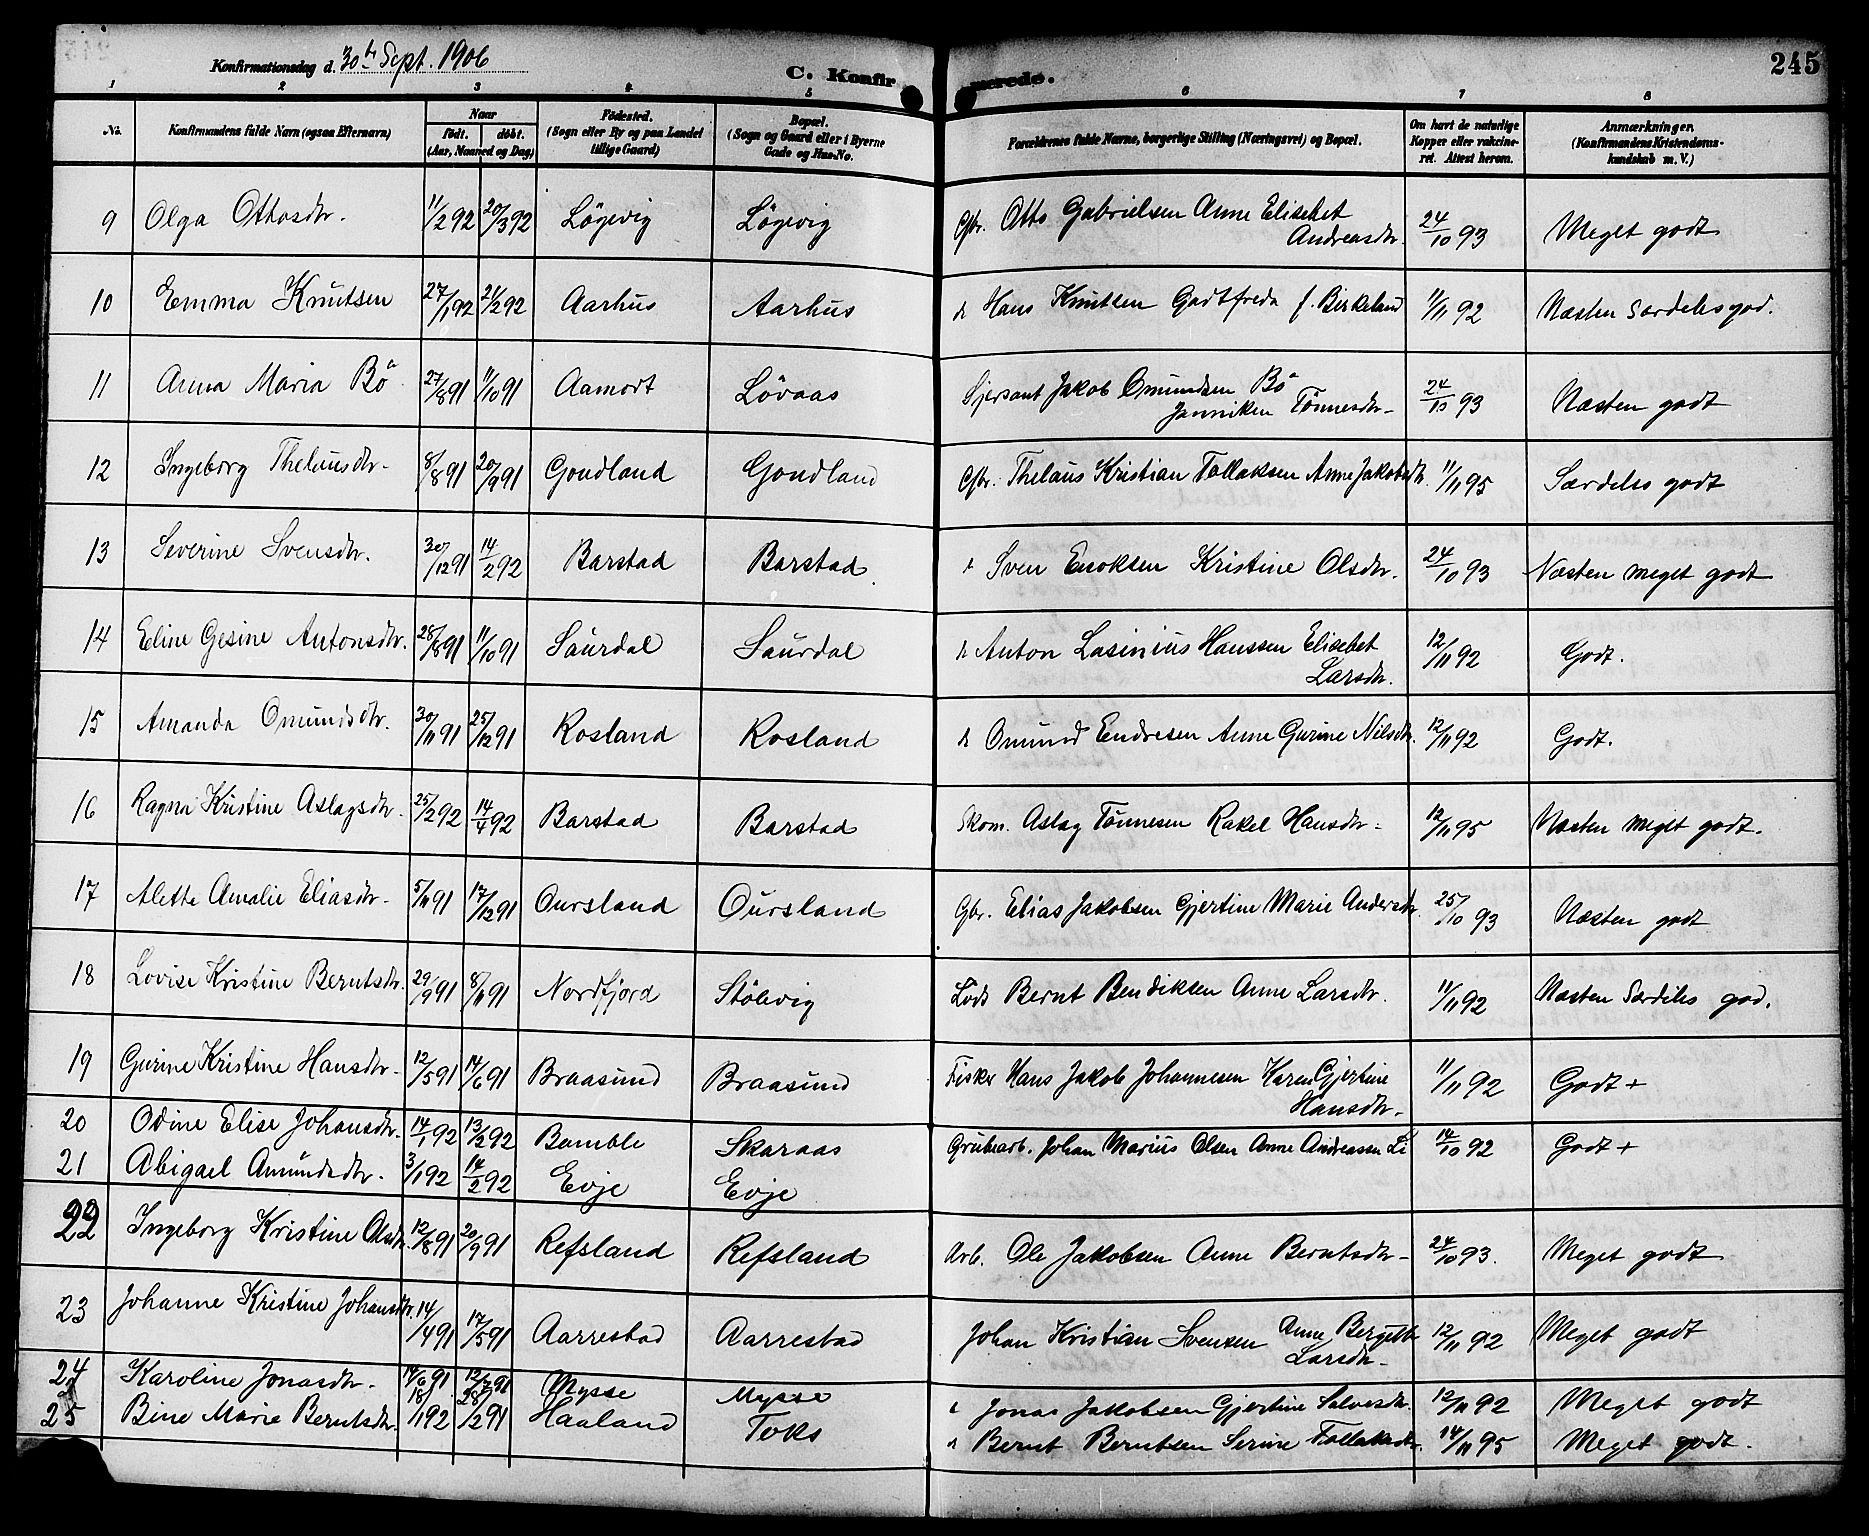 Konfirmationsdag d. 30te Sept. 1906 C. Konfirmerede. 245
1 2 3 4 5 6 7 8
No. Konfirmandens fulde Navn (ogsaa Efternavn) Naar født. døbt. (Aar, Maaned og Dag) Fødested. (Sogn eller By og paa Landet tillige Gaard) Bopæl. (Sogn og Gaard eller i Byerne Gade og Hus-No. Forældrenes fulde Navne, borgerlige Stilling (Næringsvei) og Bopæl. Om havt de naturlige Kopper eller vakcineret. Attest herom. Anmærkninger. (Konfirmandens Kristendomskundskab m. V.)
9 Olga Ottosdtr. 11/2 92 20/3 92 Lögevig Lögevig Gbr. Otto Gabrielsen Anne Elisebet Andreasdtr. 24/10 93 Meget godt
10 Emma Knutsen 27/1 92 21/2 92 Aarhus Aarhus Hans Knutsen Godtfreda f. Birkeland 11/11 92 Næsten Særdeles god.
11 Anna Maria Bö 27/8 91 11/10 91 Aamodt Lövaas Sjersant Jakob Omundsen Bö Janniken Tönnesdtr 24/10 93 Næsten godt
12 Ingeborg Thelausdtr 8/8 91 20/9 91 Goudland Goudland Gbr. Thelaus Kristian Tollaksen Anne Jakobsdtr. 11/11 95 Særdeles godt
13 Severine Svensdtr. 30/12 91 14/2 92 Barstad Barstad Sven Enoksen Kristine Olsdtr. 24/10 93 Næsten meget godt
14 Eline Gesine Antonsdtr. 28/8 91 11/10 91 Saurdal Saurdal Anton Lasinius Hanssen Elisebet Larsdtr. 12/11 92 Godt.
15 Amanda Omundsdtr. 30/11 91 25/12 91 Rosland Rosland Omund Endresen Anne Gurine Nilsdtr. 12/11 92 Godt.
16 Ragna Kristine Aslagsdtr. 25/2 92 14/4 92 Barstad Barstad Skom. Aslag Tönnesen Rakel Hansdtr 12/11 95 Næsten meget godt.
17 Alette Amalie Eliasdtr 5/11 91 17/12 91 Oursland Oursland Gbr. Elias Jakobsen Gjertine Marie Andersdtr. 25/10 93 Næsten godt
18 Lovise Kristine Berntsdtr. 29/9 91 8/11 91 Nordfjord Stölevig Lods Bernt Bendiksen Anne Larsdtr. 11/11 92 Næsten Særdeles god.
19 Gurine Kristine Hansdtr 12/5 91 14/6 91 Braasund Braasund Fisker Hans Jakob Johannesen Karen Gjertine Hansdtr 11/11 92 Godt +
20 Odine Elise Johansdtr. 14/1 92 13/2 92 Bamble Skaraas Grubearb. Johan Marius Olsen Anne Andreassen Li 14/10 92 Godt +
21 Abigael Amundsdtr. 3/1 92 14/2 92 Evje Evje
22 Ingeborg Kristine Olsdtr. 12/8 91 20/9 91 Refsland Refsland Arb. Ole Jakobsen Anne Berntsdtr 24/10 93. Meget godt
23 Johanne Kristine Johansdtr. 14/4 91 17/5 91 Aarrestad Aarrestad Johan Kristian Svensen Anne Bergette Larsdtr 12/11 92 Meget godt
24 Karoline Jonasdtr. 14/6 91 12/7 91 Mysse Mysse Jonas Jakobsen Gjertine Salvesdtr. 12/11 92 Meget godt
25 Bine Marie Berntsdtr. 18/1 92 28/2 91 Haaland Toks Bernt Berntsen Serine Tollaksdtr. 14/11 95 Meget godt.